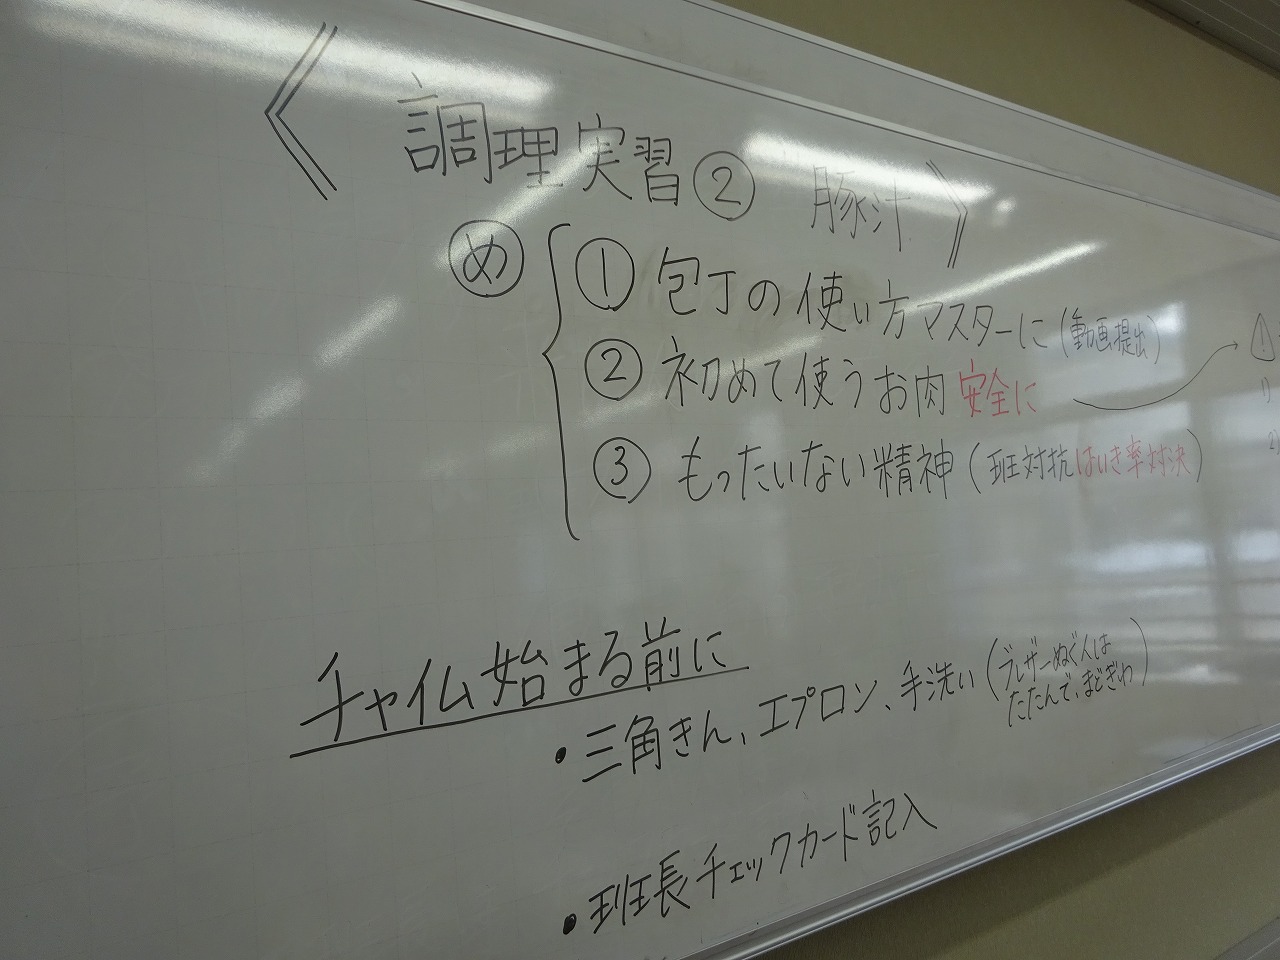 《 調理実習② 豚汁 》
め
① 包丁の使い方マスターに(動画提出)
② 初めて使うお肉安全に
③ もったいない精神(班対抗はいき率対決)
チャイム始まる前に
・三角きん、エプロン、手洗い(ブレザーぬぐ人は
たたんで、まどぎわ)
・班長チェックカード記入
!
1)
2)